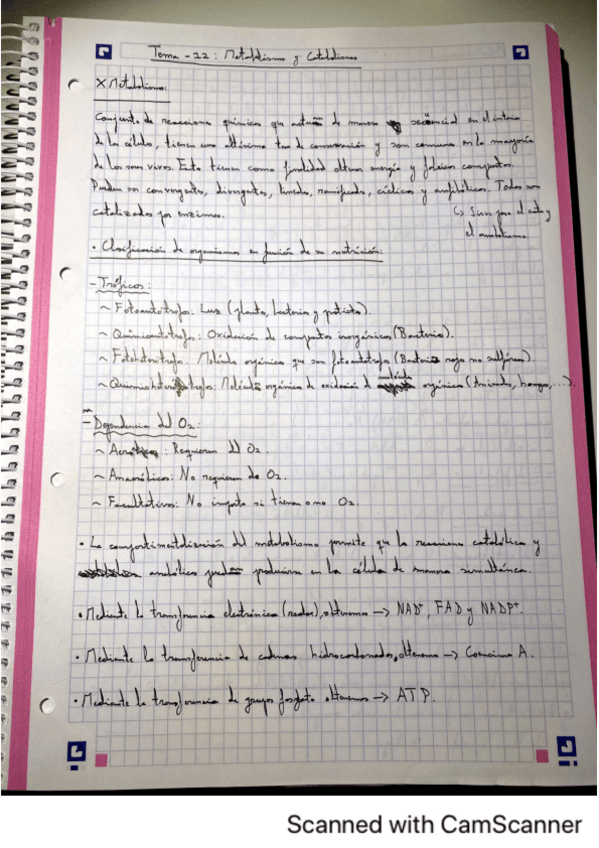 Tema - 12: Metabolismo y Catabolismo
X Metabolismo:
Conjunto de reacciones químicas que actúan de manera secuencial en el interior
de las células, tienen una altísima tasa de conservación y son comunes en la mayoría
de los seres vivos. Esta tienen como finalidad obtener energía y fabricar compuestos.
Pueden ser convergentes, divergentes, lineales, ramificadas, cíclicas y anfibólicas. Todas son
catalizadas por enzimas.
↳ Sirve para el cata y
el anabolismo.
· Clasificación de organismos en función de su nutrición:
- Tróficos:
~ Fotoautótrofos: Luz (plantas, bacterias y protistas).
~ Quimioautótrofos: Oxidación de compuestos inorgánicos (Bacterias).
~ Fotoheterótrofos: Molécula orgánica que son fotoautótrofos (Bacterias rojas no sulfúreas).
~ Quimioheterótrofos: Molécula orgánica de oxidación de molécula orgánica (Animales, hongos, ...).
- Dependencia del O2:
~ Aeróbicos: Requieren del O2.
~ Anaeróbicos: No requieren de O2.
~ Facultativos: No importa si tienen o no O2.
· La compartimentalización del metabolismo permite que las reacciones catabólicas y
anabólicas puedan producirse en la célula de manera simultánea.
· Mediante la transferencia electrónica (redox), obtenemos → NAD+, FAD y NADP+.
· Mediante la transferencia de cadenas hidrocarbonadas, obtenemos → Coenzima A.
· Mediante la transferencia de grupos fosfato obtenemos → ATP.
Scanned with CamScanner